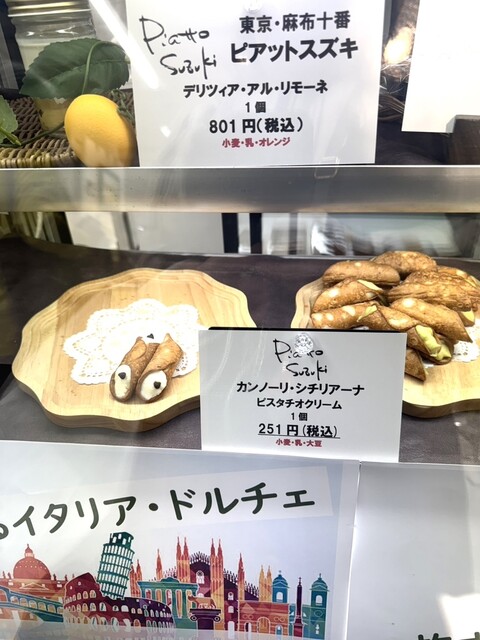 Piatto
Suzuki
東京・麻布十番
ピアットスズキ
デリツィア・アル・リモーネ
1個
801円(税込)
小麦・乳・オレンジ
Piatto
Suzuki
カンノーリ・シチリアーナ
ピスタチオクリーム
1個
251円(税込)
小麦・乳・大豆
るイタリア・ドルチェ